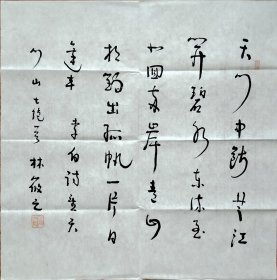 天门中断楚江
开碧水东流至
此回两岸青山
相对出孤帆一片日
边来 李白诗望天
门山七绝 林筱之